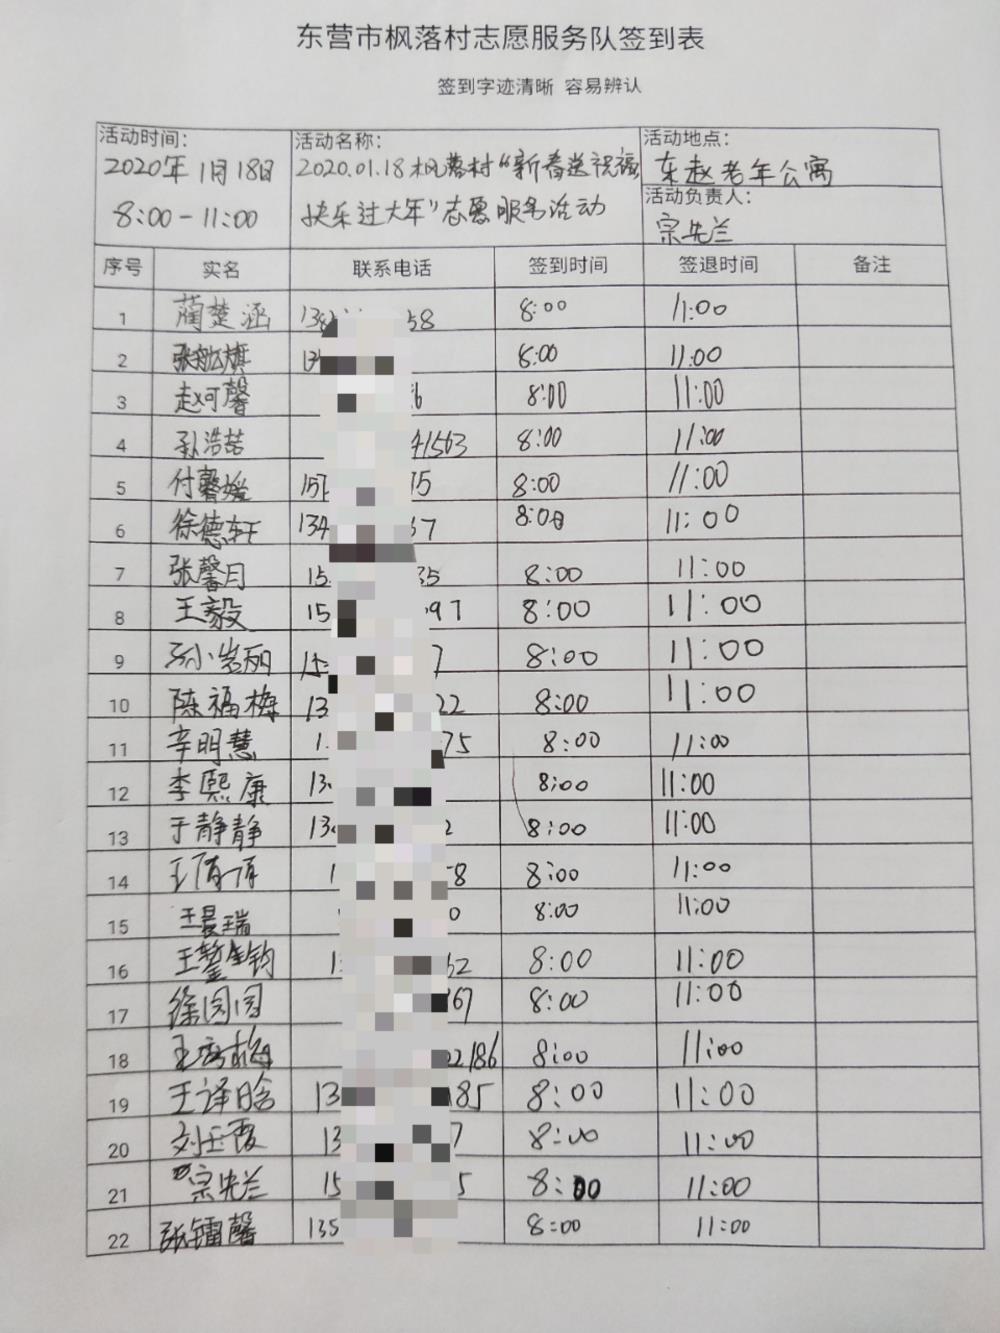 东营市枫落村志愿服务队签到表
签到字迹清晰 容易辨认
活动时间：
2020年1月18日
8:00-11:00
活动名称：
2020.01.18枫落村“新春送祝福
快乐过大年”志愿服务活动
活动地点：
东赵老年公寓
活动负责人：
宗先兰
序号 实名 联系电话 签到时间 签退时间 备注
1 蔺楚涵 138 58 8:00 11:00
2 张舩旗 13 8:00 11:00
3 赵可馨 6 8:00 11:00
4 孙浩喆 41563 8:00 11:00
5 付馨媛 157 75 8:00 11:00
6 徐德轩 134 37 8:00 11:00
7 张馨月 15 35 8:00 11:00
8 王毅 15 97 8:00 11:00
9 孙小岩丽 15 7 8:00 11:00
10 陈福梅 13 22 8:00 11:00
11 辛明慧 1 75 8:00 11:00
12 李熙康 13 8:00 11:00
13 于静静 13 2 8:00 11:00
14 王倩倩 1 8 8:00 11:00
15 王晨瑞 0 8:00 11:00
16 王鋆钧 1 62 8:00 11:00
17 徐园园 67 8:00 11:00
18 王秀梅 22186 8:00 11:00
19 王译晗 13 185 8:00 11:00
20 刘玉霞 13 7 8:00 11:00
21 宗先兰 15 5 8:00 11:00
22 张镭馨 135 8:00 11:00